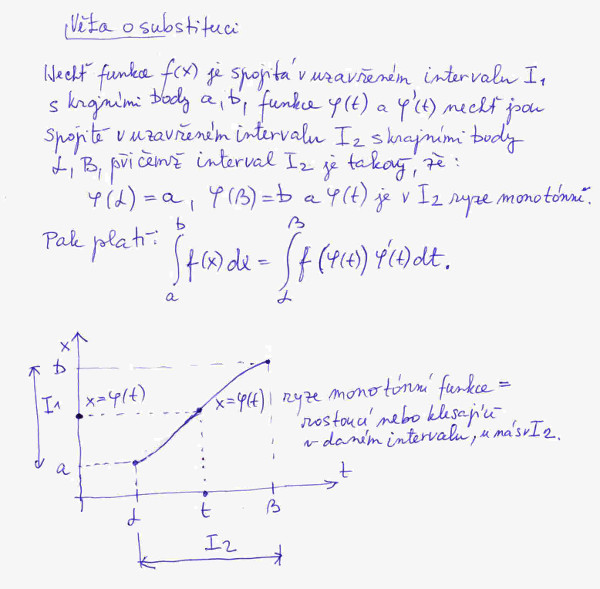 Věta o substituci
Nechť funkce f(x) je spojitá v uzavřeném intervalu I₁
s krajními body a, b, funkce φ(t) a φ'(t) nechť jsou
spojité v uzavřeném intervalu I₂ s krajními body
α, β, přičemž interval I₂ je takový, že:
φ(α) = a, φ(β) = b a φ(t) je v I₂ ryze monotónní.
Pak platí: ∫ₐᵇ f(x) dx = ∫_α^β f(φ(t)) φ'(t) dt.
x
b
I₁ x=φ(t) x=φ(t)
a
α t β
t
I₂
ryze monotónní funkce =
rostoucí nebo klesající
v daném intervalu, u nás v I₂.